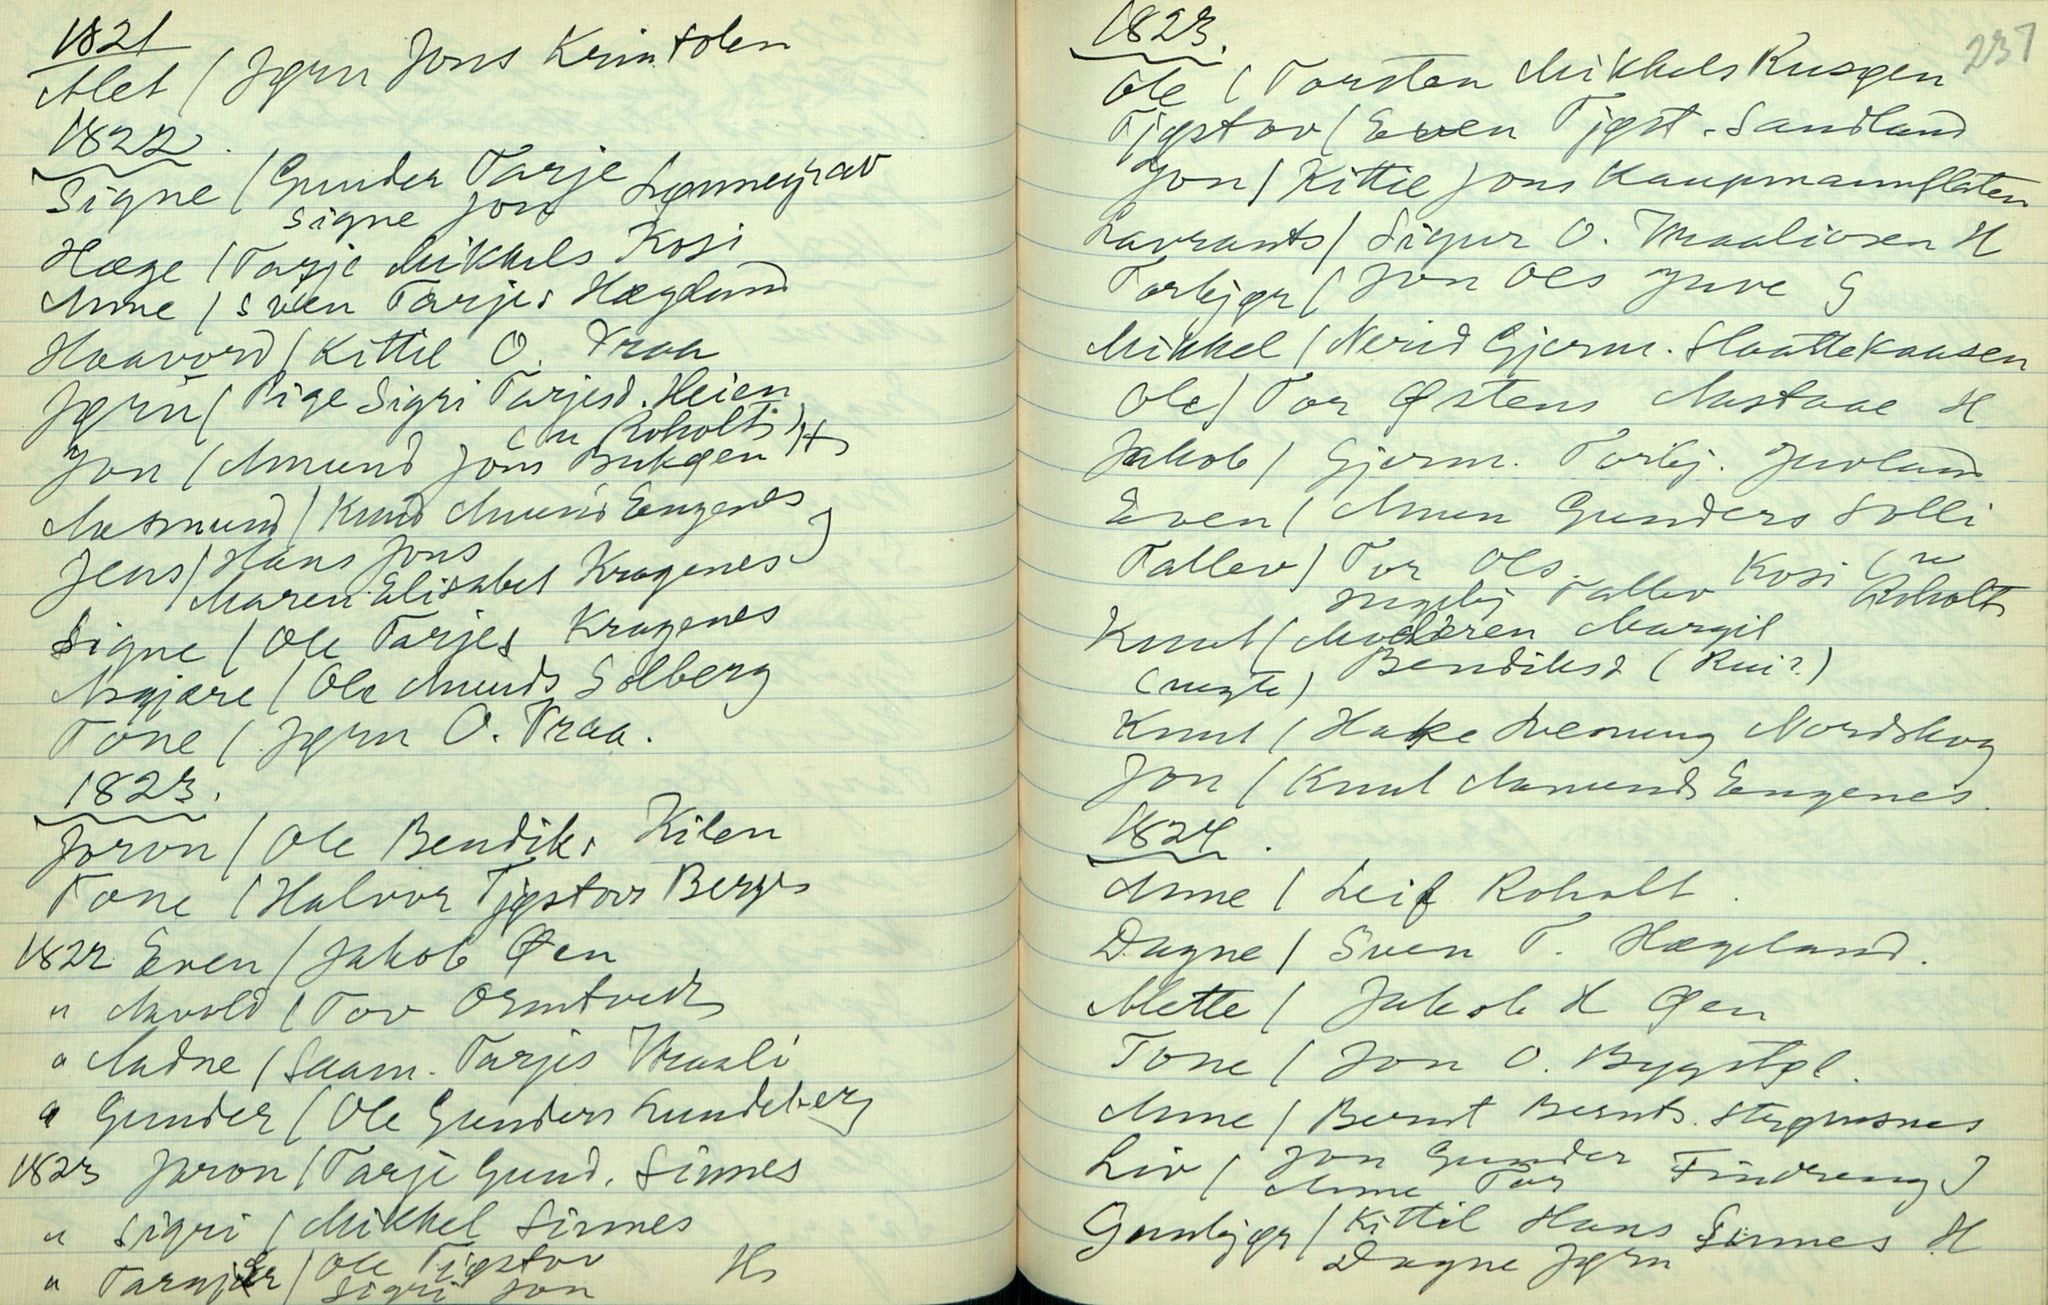 1821
Alet / Jørn Jons Krintolen
1822.
Signe / Gunder Tarje Lønnegrav
Signe Jon
Hæge / Tarje Mikkels Kosi
Anne / Sven Tarjes Hægland
Haavord / Kittil O. Traa
Jørn / Pige Sigri Tarjesd. Heien
(n Roholt)
Jon / Amund Jons Bukøen H
Aasmund / Knud Amunds Eugenes
Jens / Hans Jons
Maren Elisabet Kragenes J
Signe / Ole Tarjes Kragenes
Asgjære / Ole Amunds Solberg
Tone / Jørn O. Traa.
1823.
Joron / Ole Bendiks Kilen
Tone / Halvor Tjøstovs Berge
1822 Even / Jakob Øen
" Aavold / Tov Ormtvedt
" Aadne / Saam. Tarjes Vraali
" Gunder / Ole Gunders Lundeberg
1823 Joron / Tarje Gund. Sinnes
" Sigri / Mikkel Sinnes
" Tarajer / Ole Tjøstov H
Sigri Jon
237
1823.
Ole / Torsten Mikkels Rusøen
Tjøstov / Even Tjøst. Sandland
Jon / Kittil Jons Kaupmannflaten
Lavrants / Sigur O. Vraaliosen H
Torbjør / Jon Ols Juve G
Mikkel / Nerid Gjerm. Slaattekaasen
Ole / Tor Østens Aastaae H
Jakob / Gjerm. Torbj. Juvland
Even / Amun Gunders Solli
Tallev / Tor Ols. Kosi (n
Ingebj Tallev Roholt
Knut / Moderen Margit
(uegte) Bendiksd (Rui?)
Knut / Hake Svenung Nordskog
Jon / Knut Aamunds Eugenes.
1824.
Anne / Leif Roholt.
Dagne / Sven T. Hægeland.
Mette / Jakob H Øen
Tone / Jon O. Bygstøl.
Anne / Bernt Bernts. Stegusnes
Liv / Jon Gunder Findreng J
Anne Tor
Gunbjør / Kittil Hans Sinnes H
Dagne Jørn